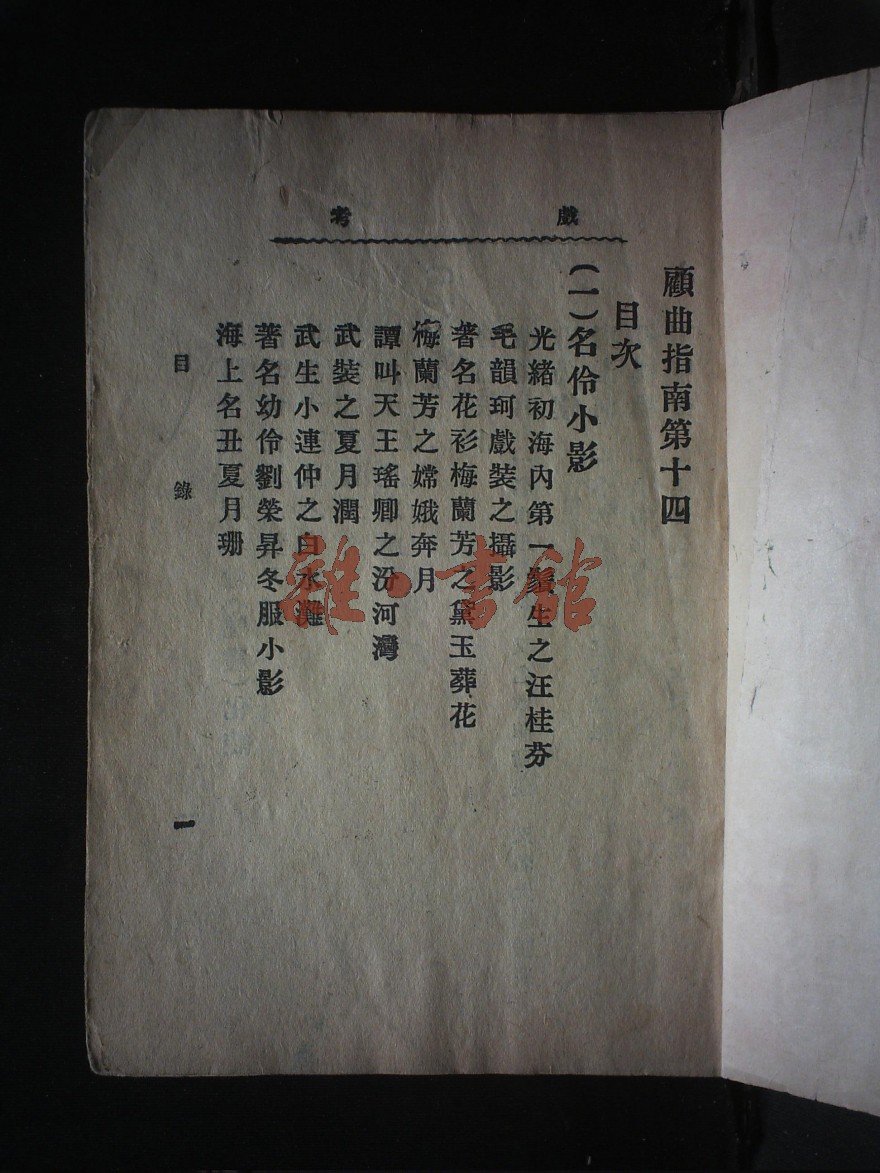 戲考
顧曲指南第十四
目次
(一)名伶小影
光緒初海內第一鬚生之汪桂芬
毛韻珂戲裝之攝影
著名花衫梅蘭芳之黛玉葬花
梅蘭芳之嫦娥奔月
譚叫天王瑤卿之汾河灣
武裝之夏月潤
武生小連仲之白水灘
著名幼伶劉榮昇冬服小影
海上名丑夏月珊
目錄
一
雜·書館